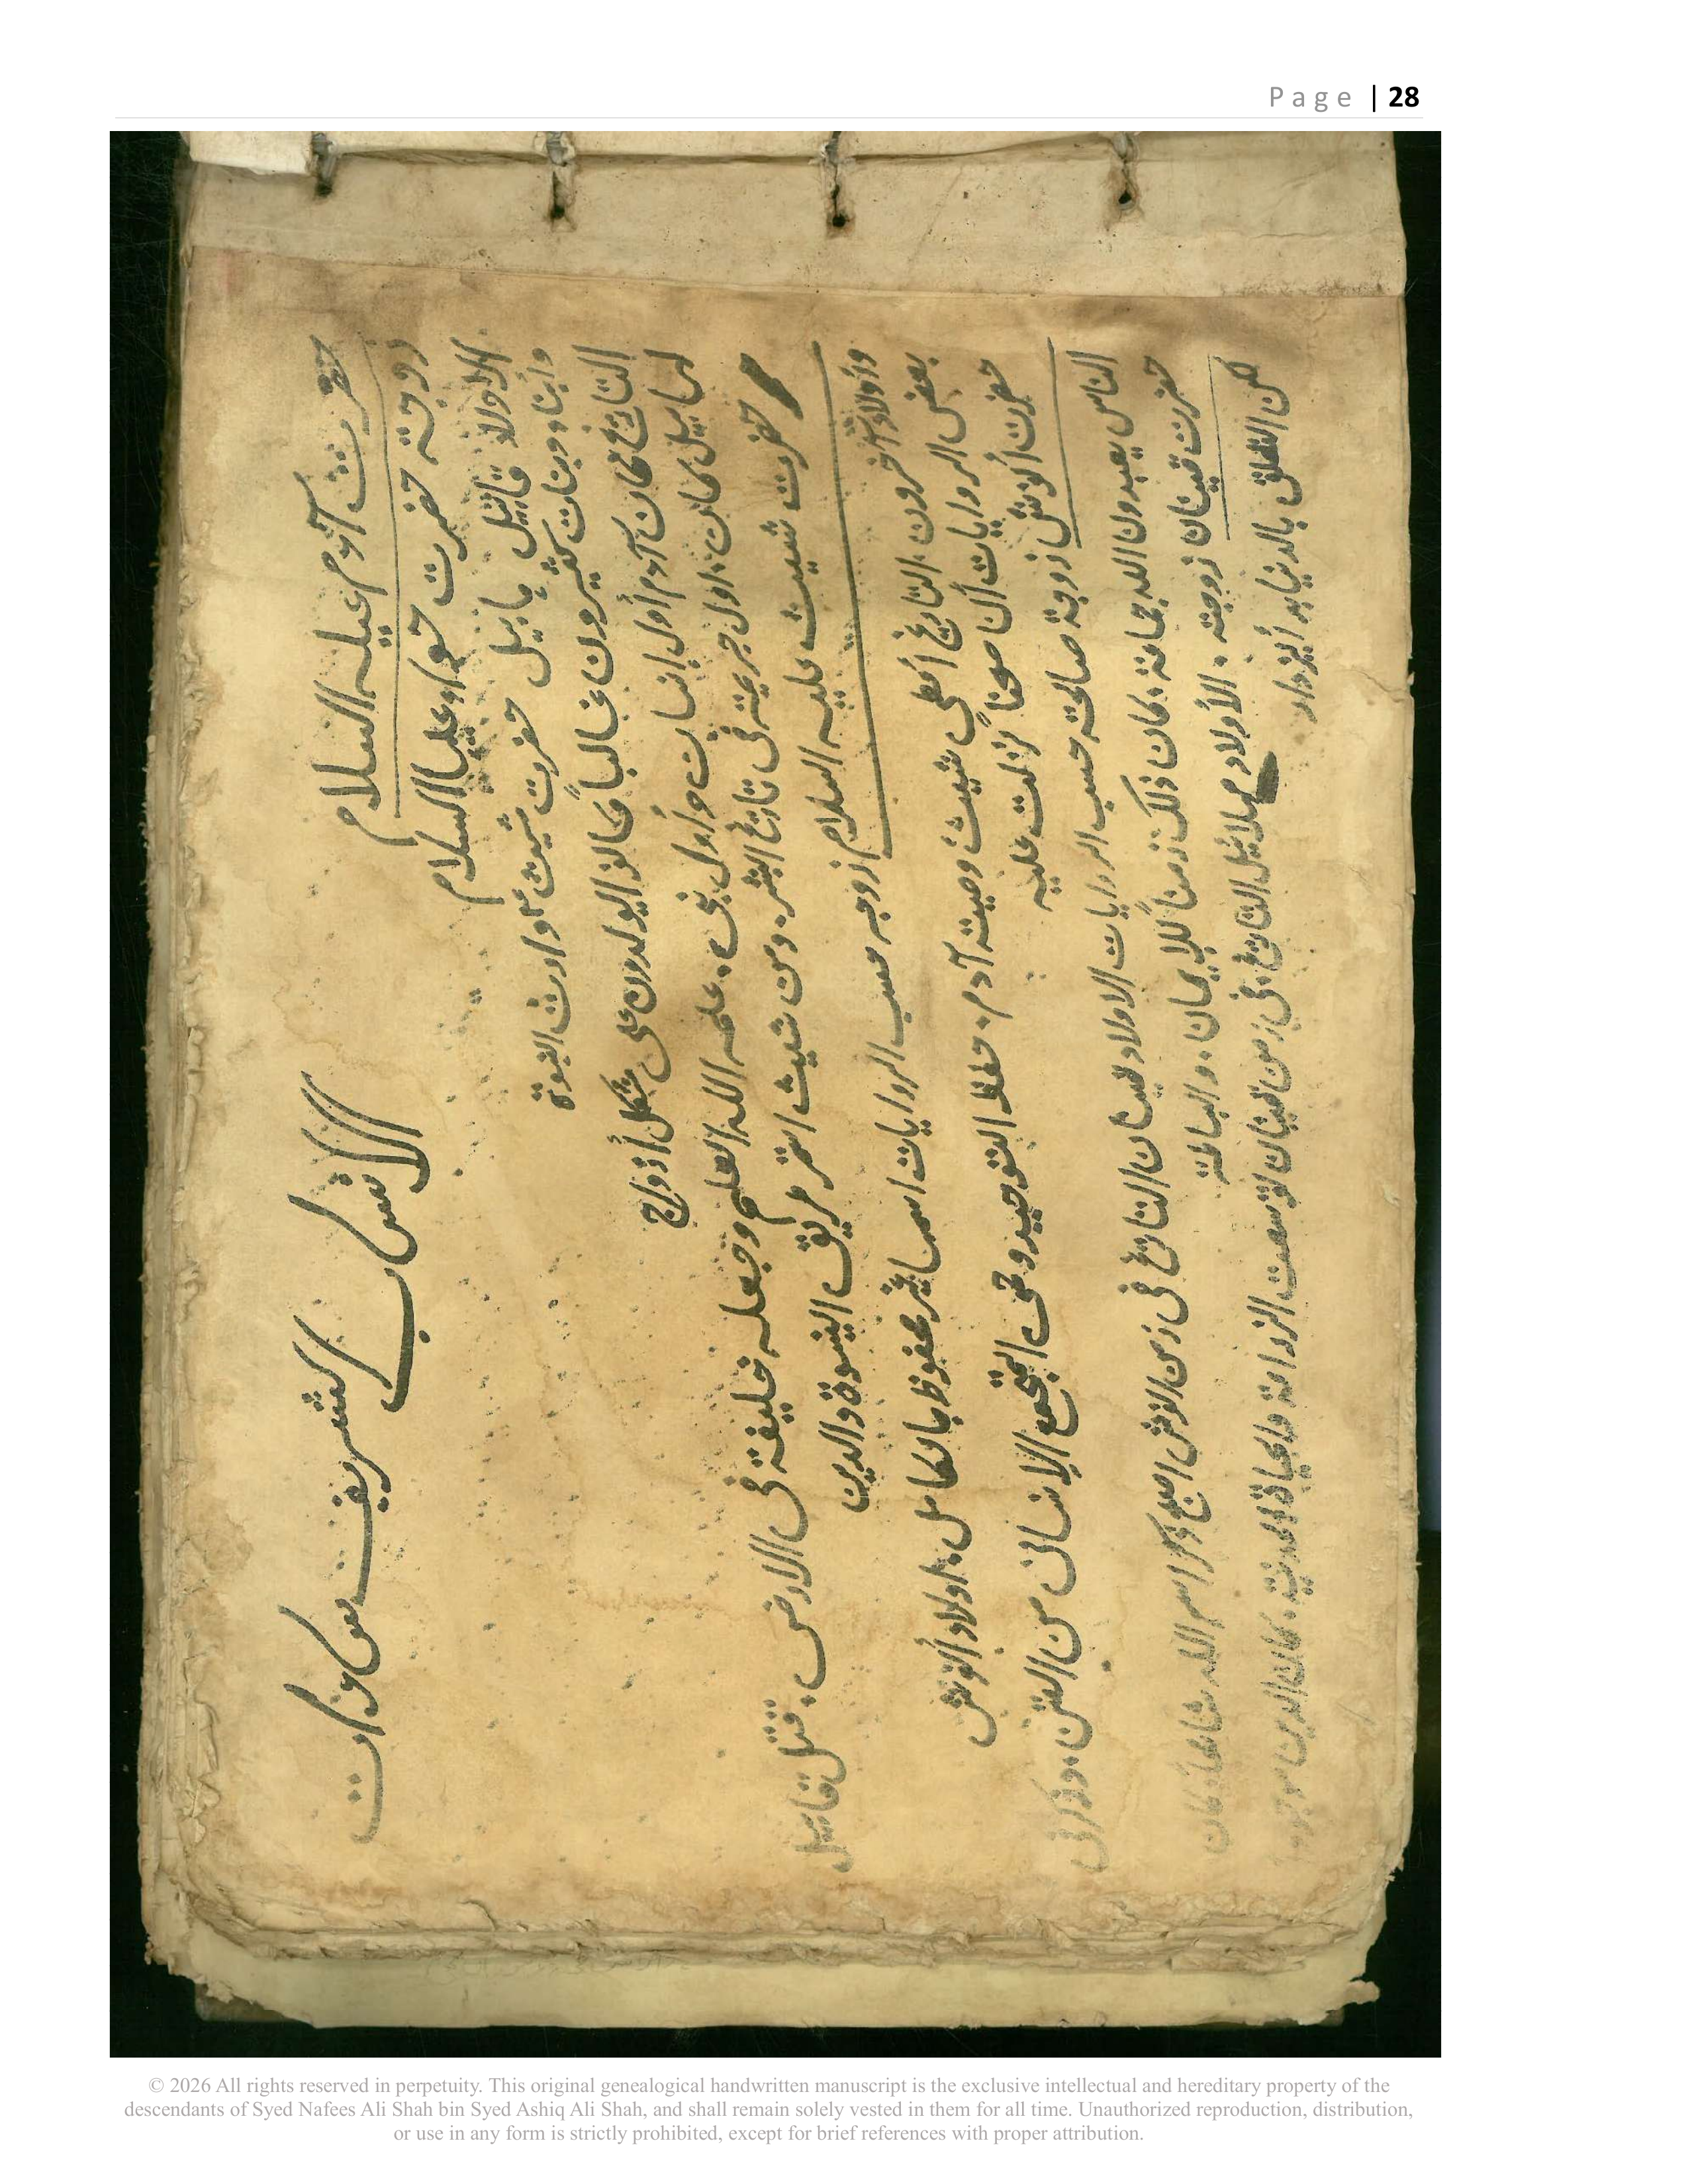 Page | 28
الانساب الشريف سادات
حضرت آدم عليه السلام
زوجة حضرت حواء عليها السلام
الاولاد قابيل يا بيل حضرت شيث وارث النبوة
وأبناء وبنات كثيرون غالباً كانوا يولدون على شكل أزواج
التاريخ كان آدم أول إنسان وأول نبي. علمه الله العلم وجعله خليفة في الارض. قتل قابيل
هابيل كان اول جريمة في تاريخ البشر. ومن شيث استمر طريق النبوة والدين
حضرت شيث عليه السلام زوجه حسب الروايات اسمها غير محفوظ بالكامل. اولاد أنوش
وأولاد آخرون. التاريخ أعطى شيث وصية آدم. حفظ التوحيد وحمى المجتمع الإنساني من الفتن. وذكر في
بعض الروايات أن صحفاً نزلت عليه
حضرت أنوش زوجة صالحة حسب الروايات الاولاد قينان التاريخ في زمن انوش اصبح ذكر اسم الله شائعاً. كان
الناس يعبدون الله جماعة. كان ذلك زمناً للإيمان. والبساطة
حضرت قينان زوجته. الأولاد مهلائيل التاريخ. في زمن قينان توسعت الزراعة والحياة المدنية. كان الدين موجود
لكن التعلق بالدنيا بدأ يزداد
© 2026 All rights reserved in perpetuity. This original genealogical handwritten manuscript is the exclusive intellectual and hereditary property of the
descendants of Syed Nafees Ali Shah bin Syed Ashiq Ali Shah, and shall remain solely vested in them for all time. Unauthorized reproduction, distribution,
or use in any form is strictly prohibited, except for brief references with proper attribution.